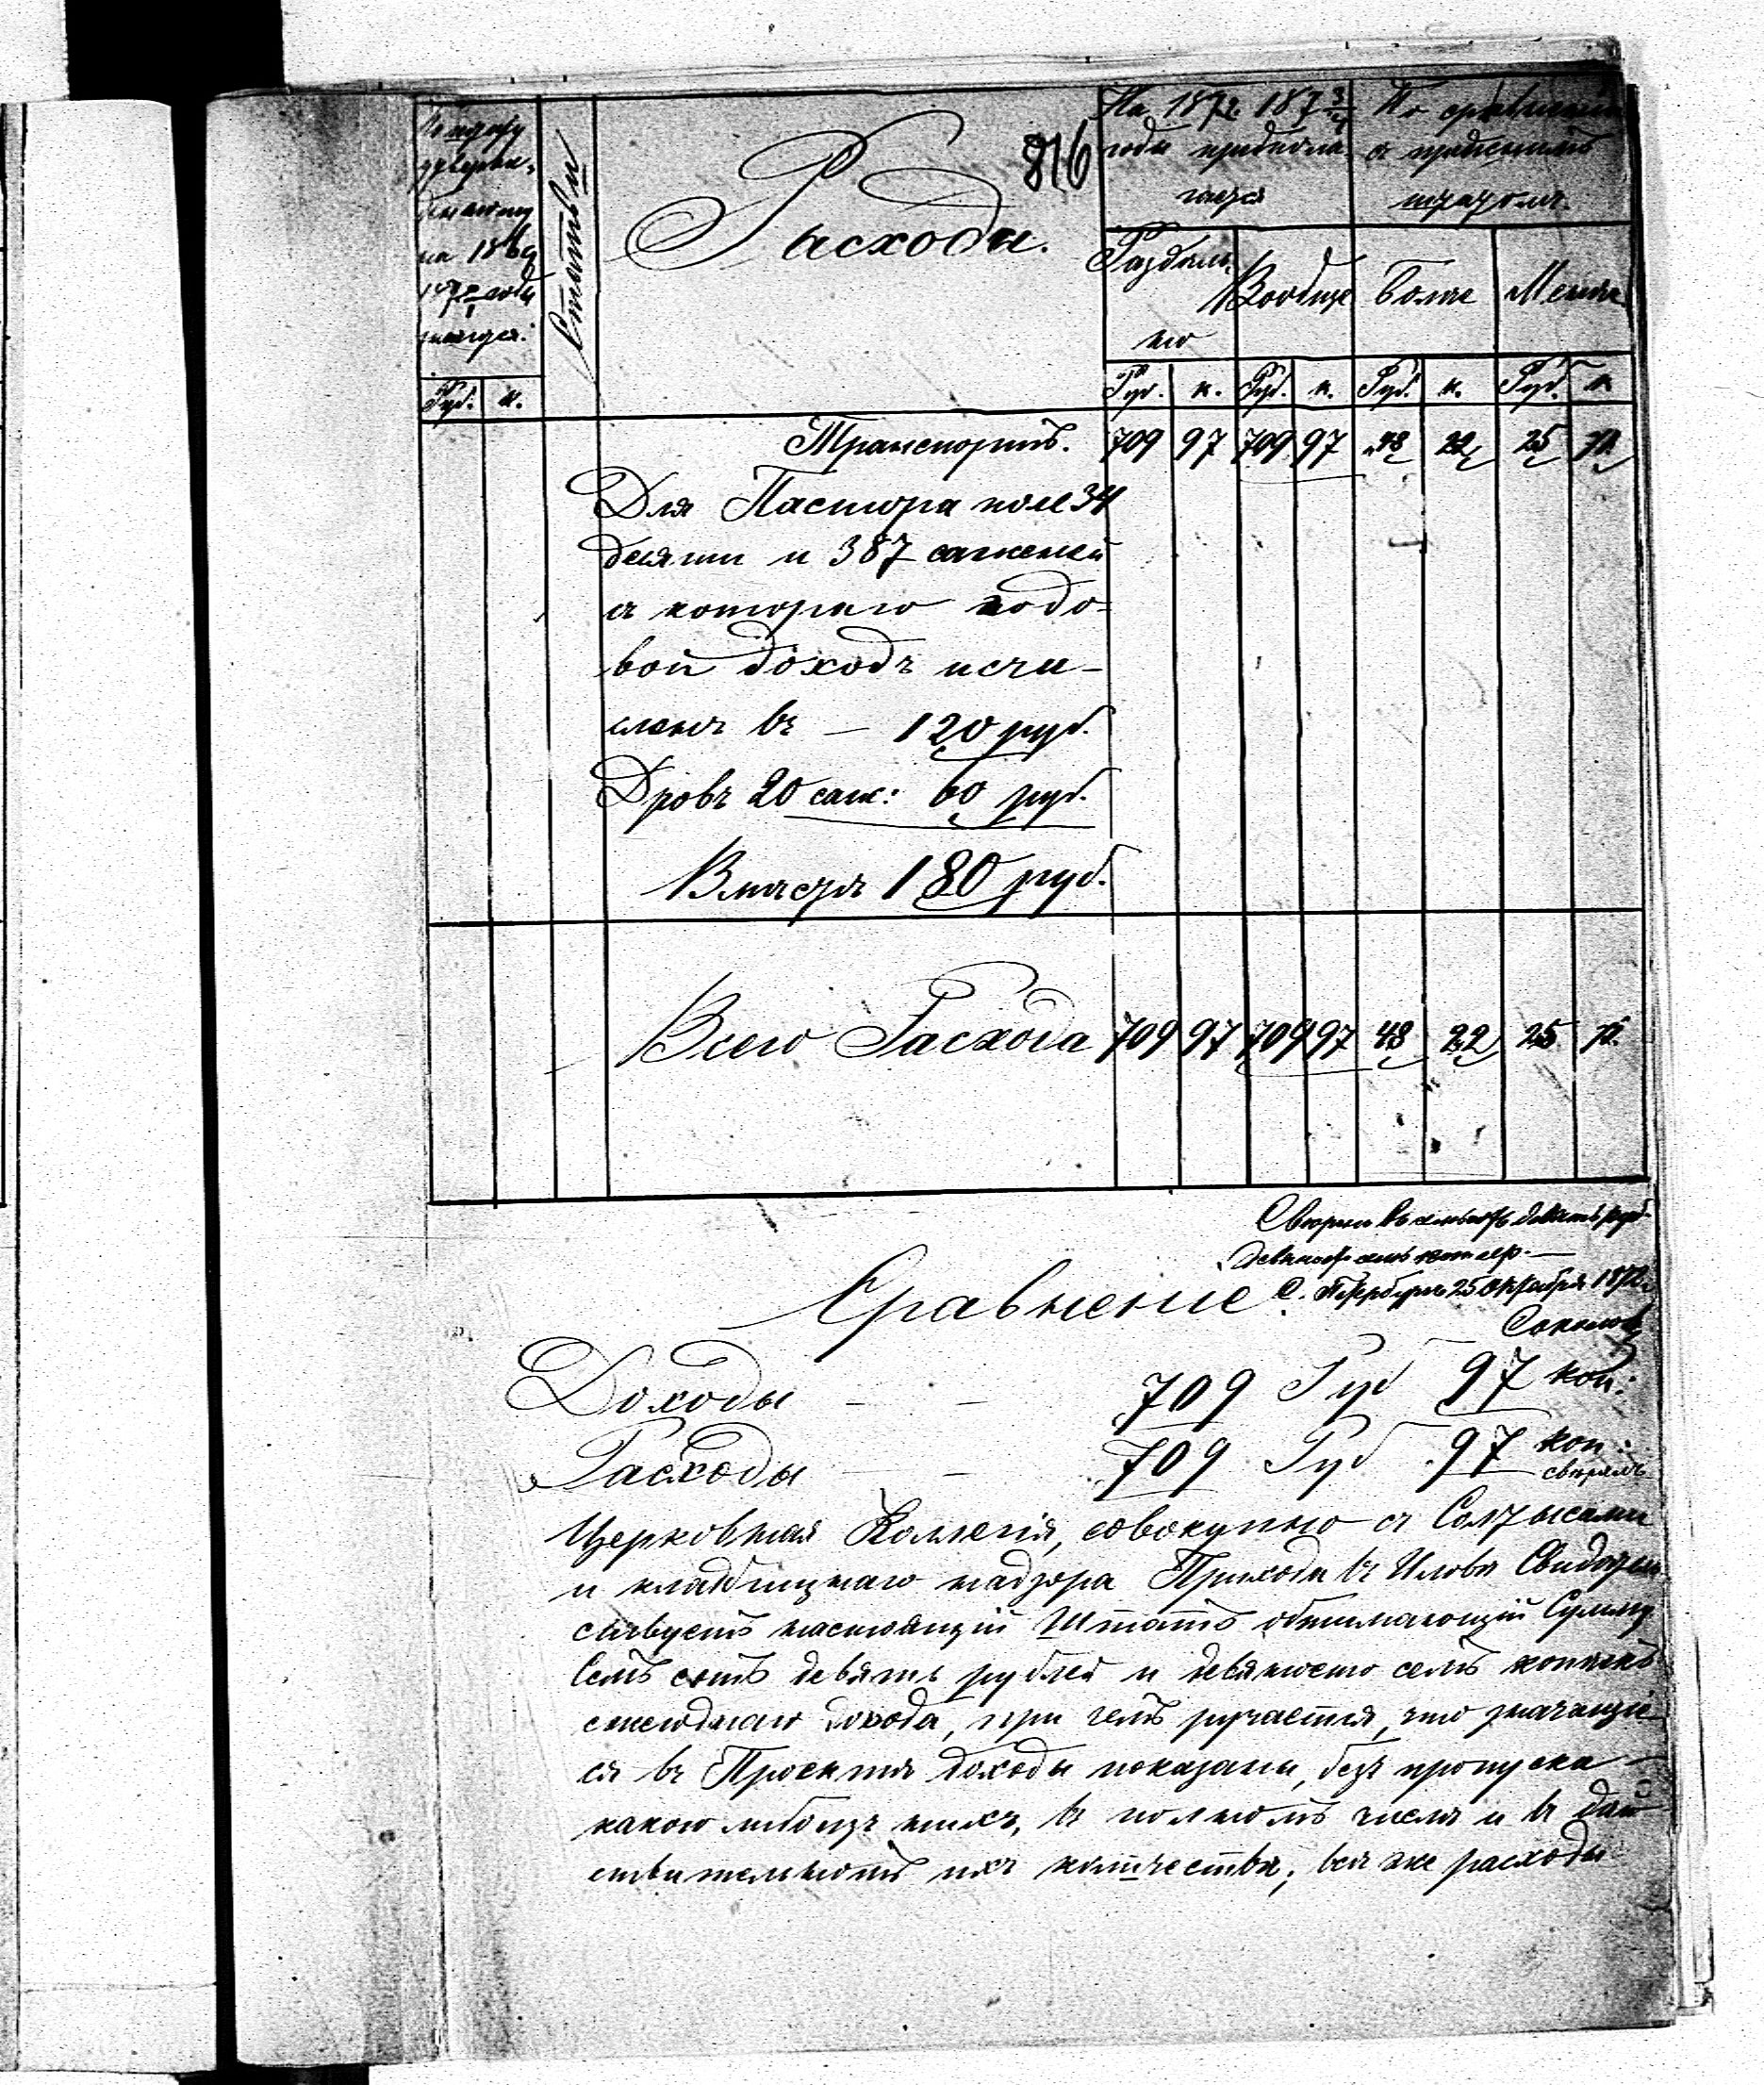 816
По
на 1869
года
Статьи
Расходы.
На 1872. 187 3/4
года предпола-
гается
По сравнении
съ прежнимъ
штатомъ.
Раздѣль-
но
Вообще
Болѣе
Менѣе
Руб. к.
Руб. к. Руб. к. Руб. к. Руб. к.
Транспортъ. 709 97 709 97 48 22 25
Для Пастора поле 34
десяти и 387 саженей
съ котораго годо-
вой доходъ исчи-
сленъ въ — 120 руб.
Дровъ 20 саж: 60 руб.
Вмѣстѣ 180 руб.
Всего Расхода 709 97 709 97 48 22 25
девять руб.
девяносто семь копѣекъ.—
С. Петербургъ 25 Октября 1872
Соколовъ
Сравненіе.
Доходы — — 709 Руб 97 коп:
Расходы — — 709 Руб 97 коп:
свѣрялъ
Церковная Коллегія, совокупно съ Солтысами
и надзора Прихода въ Иловѣ Свидѣтель-
ствуетъ настоящій Штатъ обнимающій Сумму
Семь сотъ девять рублей и девяносто семь копѣекъ
ежегоднаго дохода, при чемъ ручается, что значащіе-
ся въ Проектѣ доходы показаны, безъ пропуска
какого либо изъ нихъ, въ полномъ числѣ и въ дѣй-
ствительномъ ихъ количествѣ; всѣ же расходы